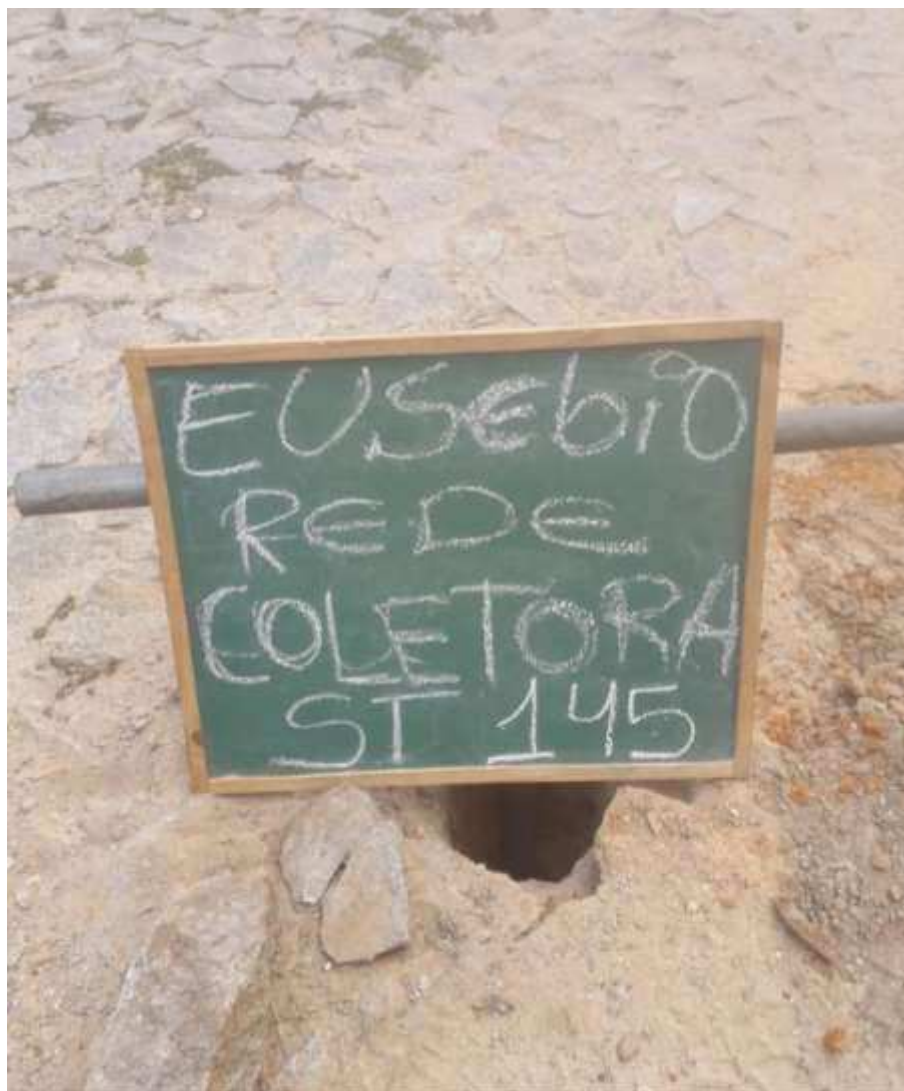 EUSEbiO
REDE
COLETORA
ST 145